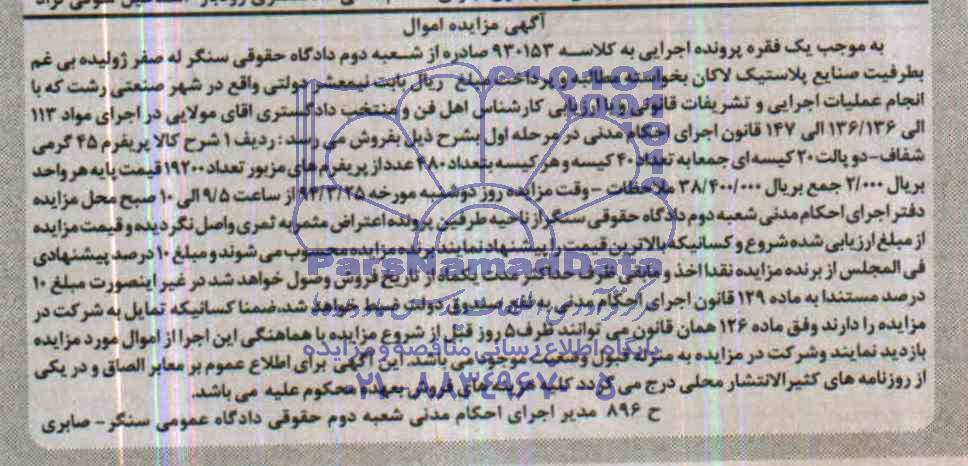 آگهی مزایده اموال
به موجب یک فقره پرونده اجرایی به کلاسه ۹۳۰۱۵۳ صادره از شعبه دوم دادگاه حقوقی سنگر له صفر ژولیده بی غم
بطرفیت صنایع پلاستیک لاکان بخواسته مطالبه و پرداخت مبلغ ریال بابت نیمعشر دولتی واقع در شهر صنعتی رشت که با
انجام عملیات اجرایی و تشریفات قانونی و با ارزیابی کارشناس اهل فن و منتخب دادگستری اقای مولایی در اجرای مواد ۱۱۳
الی ۱۳۶/۱۳۶ الی ۱۴۷ قانون اجرای احکام مدنی در مرحله اول بشرح ذیل بفروش می رسد : ردیف ۱ شرح کالا پریفرم ۴۵ گرمی
شفاف-دو پالت ۲۰ کیسه ای جمعا به تعداد ۴۰ کیسه و هر کیسه بتعداد ۴۸۰ عدد از پریفرم های مزبور تعداد ۱۹۲۰۰ قیمت پایه هر واحد
بریال ۲/۰۰۰ جمع بریال ۳۸/۴۰۰/۰۰۰ ملاحظات -وقت مزایده روز دوشنبه مورخه ۹۴/۳/۲۵ از ساعت ۹/۵ الی ۱۰ صبح محل مزایده
دفتر اجرای احکام مدنی شعبه دوم دادگاه حقوقی سنگر از ناحیه طرفین پرونده اعتراض مثمر به ثمری واصل نگردیده و قیمت مزایده
از مبلغ ارزیابی شده شروع و کسانیکه بالاترین قیمت را پیشنهاد نمایند برنده مزایده محسوب می شوند و مبلغ ۱۰ درصد پیشنهادی
فی المجلس از برنده مزایده نقدا اخذ و مابقی ظرف حداکثر مدت یکماه از تاریخ فروش وصول خواهد شد در غیر اینصورت مبلغ ۱۰
درصد مستندا به ماده ۱۲۹ قانون اجرای احکام مدنی به نفع صندوق دولت ضبط خواهد شد، ضمنا کسانیکه تمایل به شرکت در
مزایده را دارند وفق ماده ۱۲۶ همان قانون می توانند ظرف ۵ روز قبل از شروع مزایده با هماهنگی این اجرا از اموال مورد مزایده
بازدید نمایند وشرکت در مزایده به منزله قبول وضعیت موجود می باشد. این آگهی برای اطلاع عموم بر معابر الصاق و در یکی
از روزنامه های کثیرالانتشار محلی درج می گردد کلیه هزینه های فروش بعهده محکوم علیه می باشد.
ح ۸۹۶ مدیر اجرای احکام مدنی شعبه دوم حقوقی دادگاه عمومی سنگر- صابری
ParsNamadData
پایگاه اطلاع رسانی مناقصه و مزایده
۰۲۱-۸۸۳۴۹۶۷۰-۵